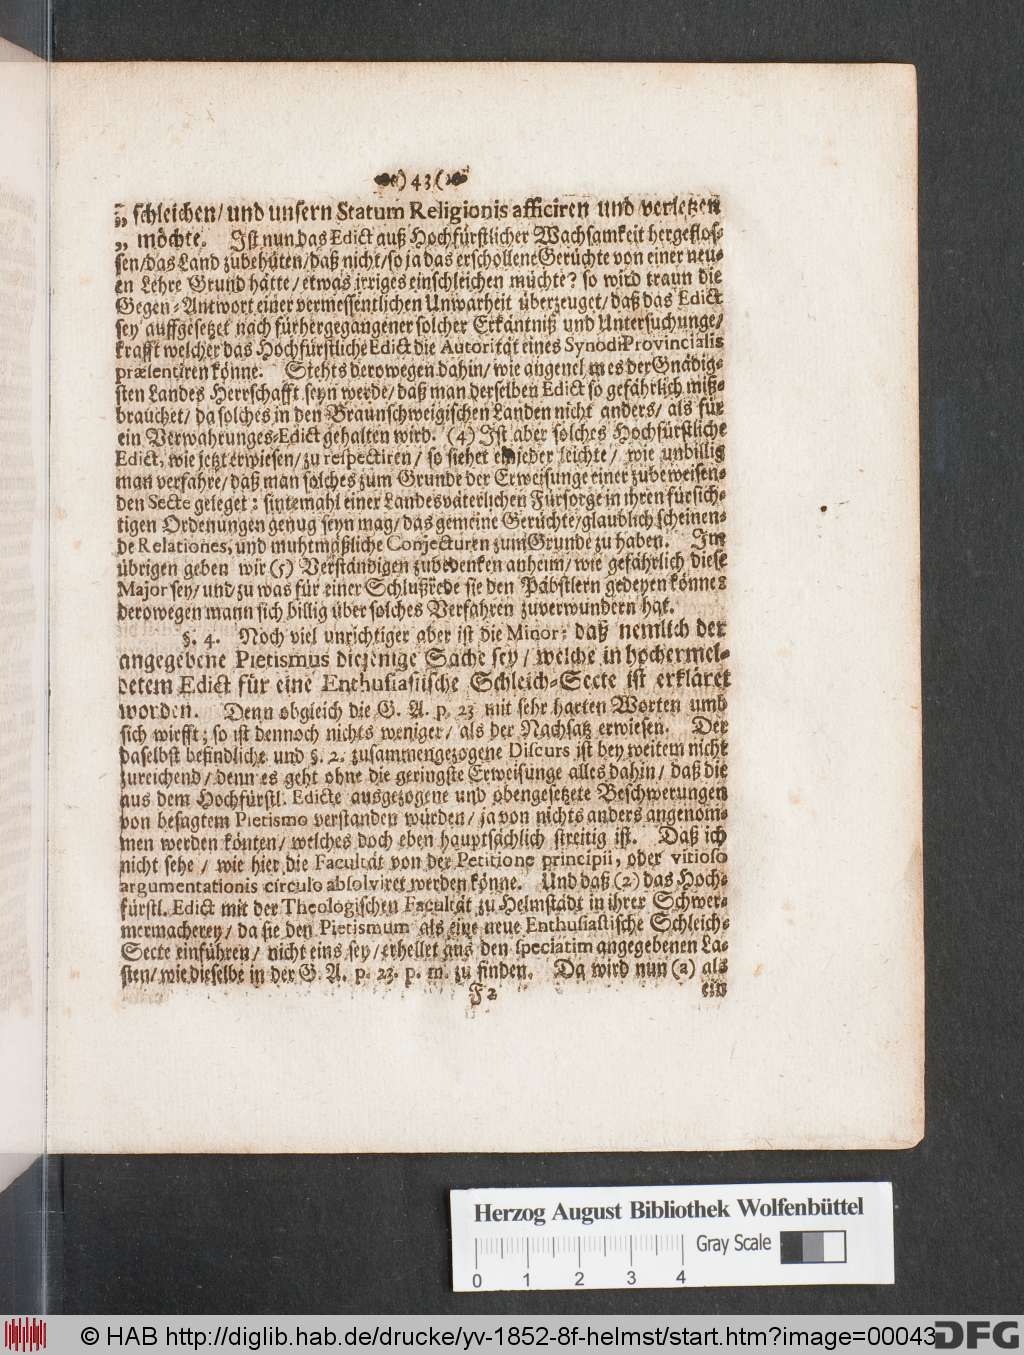 )43(
„ schleichen/ und unsern Statum Religionis afficiren und verletzen
„ möchte. Ist nun das Edict auß Hochfürstlicher Wachsamkeit hergeflos-
sen/ das Land zubehüten/ daß nicht/ so ja das erschollene Gerüchte von einer neu-
en Lehre Grund hätte/ etwas irriges einschleichen müchte? so wird traun die
Gegen-Antwort einer vermessentlichen Unwarheit überzeuget/ daß das Edict
sey auffgesetzet nach fürhergegangener solcher Erkäntniß und Untersuchunge/
krafft welcher das Hochfürstliche Edict die Autorität eines Synodi Provincialis
prælentiren könne. Stehts derowegen dahin/ wie angenehm es der Gnädig-
sten Landes Herrschafft seyn werde/ daß man derselben Edict so gefährlich miß-
brauchet/ da solches in den Braunschweigischen Landen nicht anders/ als für
ein Verwahrunges-Edict gehalten wird. (4) Ist aber solches Hochfürstliche
Edict, wie jetzt erwiesen/ zu respectiren/ so siehet ein jeder leichte/ wie unbillig
man verfahre/ daß man solches zum Grunde der Erweisunge einer zubeweisen-
den Secte geleget: sintemahl einer Landesväterlichen Fürsorge in ihren fürsich-
tigen Ordenungen genug seyn mag/ das gemeine Gerüchte/ glaublich scheinen-
de Relationes, und muhtmäßliche Conjecturen zum Grunde zu haben. Im
übrigen geben wir (5) Verständigen zubedenken anheim/ wie gefährlich diese
Major sey/ und zu was für einer Schlußrede sie den Päbstlern gedeyen könne:
derowegen mann sich billig über solches Verfahren zuverwundern hat.
§. 4. Noch viel unrichtiger aber ist die Minor: daß nemlich der
angegebene Pietismus diejenige Sache sey/ welche in hochermel-
detem Edict für eine Enthusiastische Schleich-Secte ist erkläret
worden. Denn obgleich die G. A. p. 23 mit sehr harten Worten umb
sich wirfft; so ist dennoch nichts weniger/ als der Nachsatz erwiesen. Der
daselbst befindliche und §. 2. zusammengezogene Discurs ist bey weitem nicht
zureichend/ denn es geht ohne die geringste Erweisunge alles dahin/ daß die
aus dem Hochfürstl. Edicte ausgezogene und obengesetzete Beschwerungen
von besagtem Pietismo verstanden würden/ ja von nichts anders angenom-
men werden könten/ welches doch eben hauptsächlich streitig ist. Daß ich
nicht sehe/ wie hier die Facultät von der Petitione principii, oder vitioso
argumentationis circulo absolviret werden könne. Und daß (2) das Hoch-
fürstl. Edict mit der Theologischen Facultät zu Helmstädt in ihrer Schwer-
mermacherey/ da sie den Pietismum als eine neue Enthusiastische Schleich-
Secte einführen/ nicht eins sey/ erhellet aus den speciatim angegebenen La-
sten/ wie dieselbe in der G. A. p. 23. p. m. zu finden. Da wird nun (2) als
F 2 ein
Herzog August Bibliothek Wolfenbüttel
Gray Scale
0 1 2 3 4
© HAB http://diglib.hab.de/drucke/yv-1852-8f-helmst/start.htm?image=00043
DFG